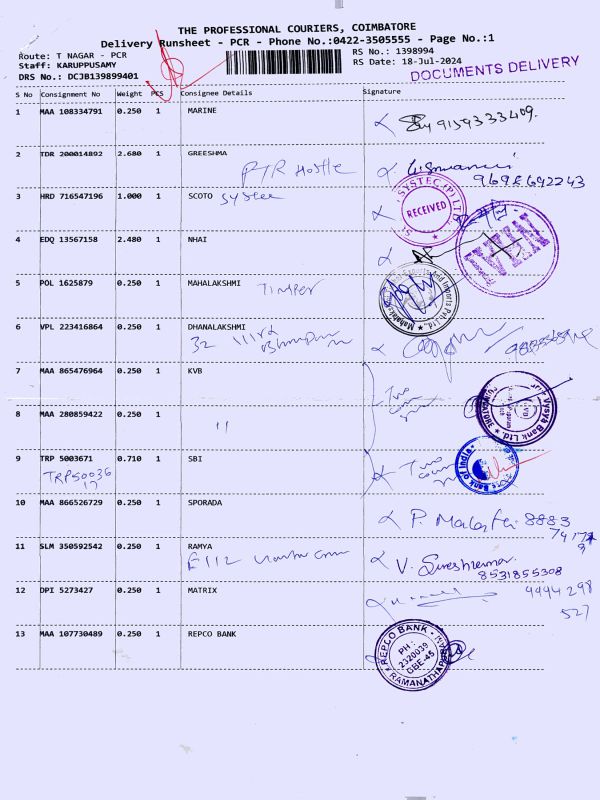 THE PROFESSIONAL COURIERS, COIMBATORE
Delivery Runsheet - PCR - Phone No.:0422-3505555 - Page No.:1
Route: T NAGAR - PCR RS No.: 1398994
Staff: KARUPPUSAMY RS Date: 18-Jul-2024
DRS No.: DCJB139899401 DOCUMENTS DELIVERY
S No Consignment No Weight PCS Consignee Details Signature
1 MAA 108334791 0.250 1 MARINE 9159333409.
2 TDR 200014892 2.680 1 GREESHMA
PTR Hostle
9698642243
3 HRD 716547196 1.000 1 SCOTO System
SYSTEC (P) LTD RECEIVED
4 EDQ 13567158 2.480 1 NHAI
5 POL 1625879 0.250 1 MAHALAKSHMI Timber
6 VPL 223416864 0.250 1 DHANALAKSHMI
32
7 MAA 865476964 0.250 1 KVB
Two
Vysya Bank Ltd
8 MAA 280859422 0.250 1
"
9 TRP 5003671 0.710 1 SBI
TRP50036
17
Two
Bank of India
10 MAA 866526729 0.250 1 SPORADA
P. 8883
7417
9
11 SLM 350592542 0.250 1 RAMYA
E112
V. Sureshkumar
8531855308
12 DPI 5273427 0.250 1 MATRIX
9994298
527
13 MAA 107730489 0.250 1 REPCO BANK
REPCO BANK
PH:
2320039
CBE-45
RAMANATHAPURAM